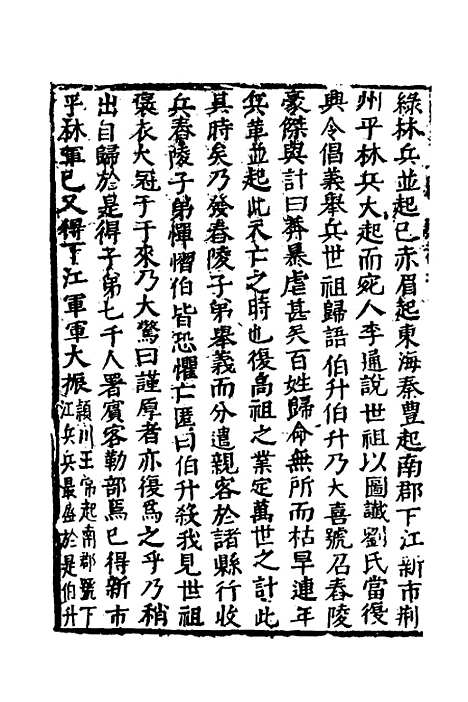 綠林兵並起已亦眉起東海秦豊起南郡下江新市荆
州平林兵大起而宛人李通說世祖以圖讖劉氏當復
興令倡義舉兵世祖歸語伯升伯升乃大喜號召舂陵
豪傑與計曰莽暴虐甚矣百姓歸命無所而枯旱連年
兵革並起此天亡之時也復高祖之業定萬世之計此
其時矣乃發舂陵子弟舉義而分遣親客於諸縣行收
兵舂陵子弟憚慴伯皆恐懼亡匿曰伯升殺我見世祖
褒衣大冠于于來乃大驚曰謹厚者亦復爲之乎乃稍
出自歸於是得子弟七千人署賓客勒部焉已得新市
平林軍已又得下江軍軍大振潁川王常起南郡號下
江兵兵最盛於是伯升